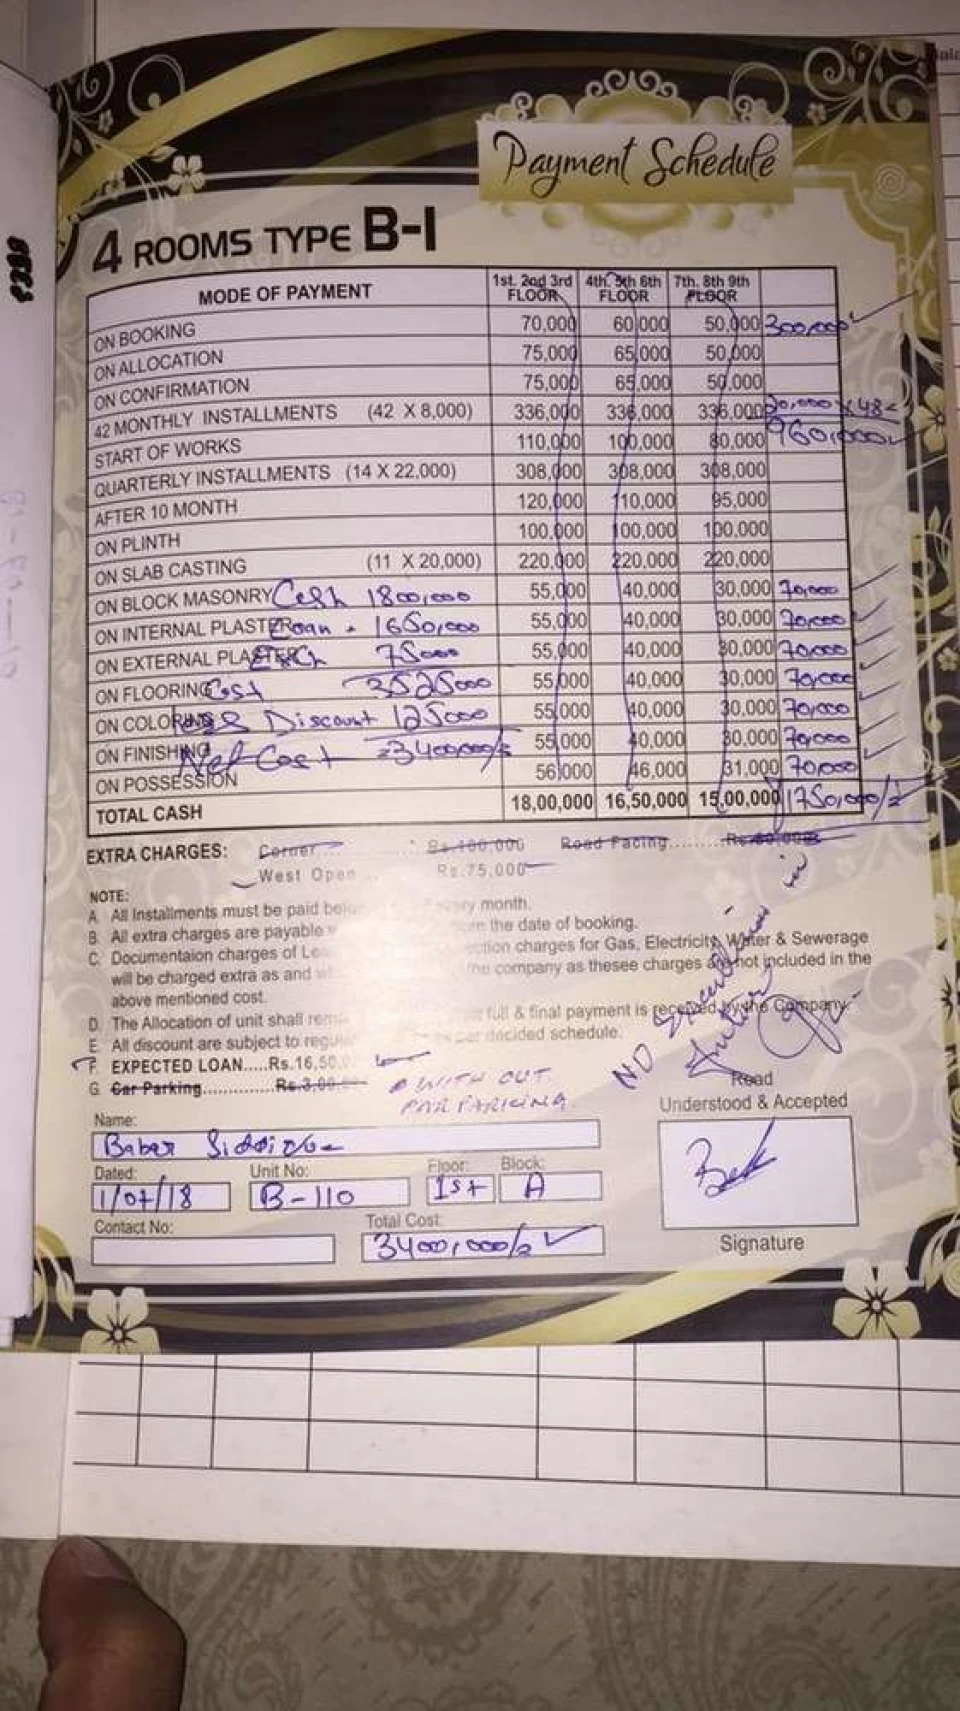 Payment Schedule
4 ROOMS TYPE B-I
MODE OF PAYMENT 1st. 2nd 3rd FLOOR 4th. 5th 6th FLOOR 7th. 8th 9th FLOOR
ON BOOKING 70,000 60,000 50,000 300,000
ON ALLOCATION 75,000 65,000 50,000
ON CONFIRMATION 75,000 65,000 50,000
42 MONTHLY INSTALLMENTS (42 X 8,000) 336,000 336,000 336,000 20,000 x 48=
START OF WORKS 110,000 100,000 80,000 960,000
QUARTERLY INSTALLMENTS (14 X 22,000) 308,000 308,000 308,000
AFTER 10 MONTH 120,000 110,000 95,000
ON PLINTH 100,000 100,000 100,000
ON SLAB CASTING (11 X 20,000) 220,000 220,000 220,000
ON BLOCK MASONRY Cash 1800,000 55,000 40,000 30,000 70,000
ON INTERNAL PLASTER Loan - 1650,000 55,000 40,000 30,000 70,000
ON EXTERNAL PLASTER 75000 55,000 40,000 30,000 70,000
ON FLOORING Cost 3525000 55,000 40,000 30,000 70,000
ON COLORING less Discount 125000 55,000 40,000 30,000 70,000
ON FINISHING Net Cost =3400,000/= 55,000 40,000 30,000 70,000
ON POSSESSION 56,000 46,000 31,000 70,000
TOTAL CASH 18,00,000 16,50,000 15,00,000 1750,000/=
EXTRA CHARGES: Corner Rs.100,000 Road Facing
West Open Rs.75,000
NOTE:
A. All Installments must be paid month.
B. All extra charges are payable the date of booking.
C. Documentaion charges of charges for Gas, Electricity, Water & Sewerage
will be charged extra as and the company as thesee charges are not included in the
above mentioned cost.
D. The Allocation of unit shall full & final payment is received by the Company.
E. All discount are subject to decided schedule.
F. EXPECTED LOAN.....Rs.16,50,
G. Car Parking..............Rs.3,00,
WITH OUT
PARKING.
NO
in
Read
Understood & Accepted
Name:
Baber Siddique
Dated: Unit No: Floor: Block:
1/07/18 B-110 1st A
Contact No: Total Cost:
3400,000/=
Signature